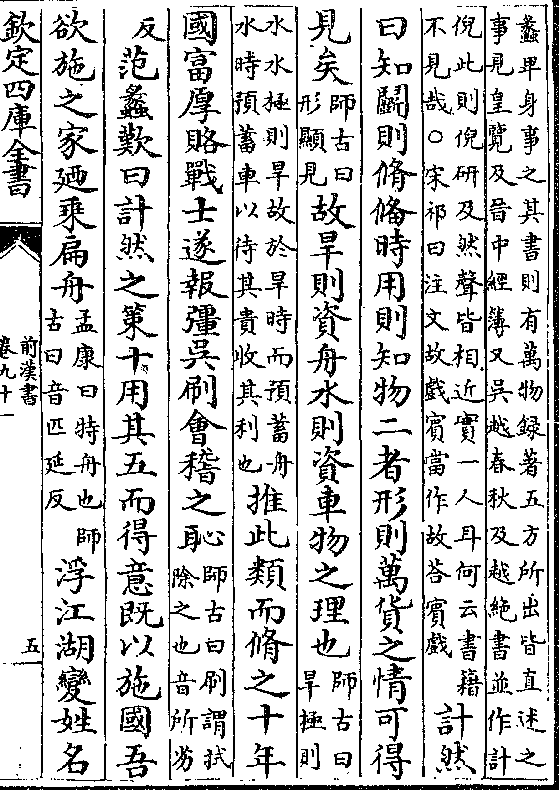 蠡卑身事之其書則有萬物録著五方所出皆直述之
事見皇覽及晉中經簿又吳越春秋及越絶書並作計
倪此則倪研及然聲皆相近實一人耳何云書籍
不見哉○宋祁曰注文故戲賓當作故荅賓戲
計然
曰知鬬則脩備時用則知物二者形則萬貨之情可得
見矣
師古曰
形顯見
故旱則資舟水則資車物之理也
師古曰
旱極則
水水極則旱故於旱時而預蓄舟
水時預蓄車以待其貴收其利也
推此類而脩之十年
國富厚賂戰士遂報彊吳刷會稽之恥
師古曰刷謂拭
除之也音所劣
反
范蠡歎曰計然之策十用其五而得意既以施國吾
欲施之家廼乘扁舟
孟康曰特舟也師
古曰音匹延反
浮江湖變姓名
欽定四庫全書
前漢書
卷九十一
五